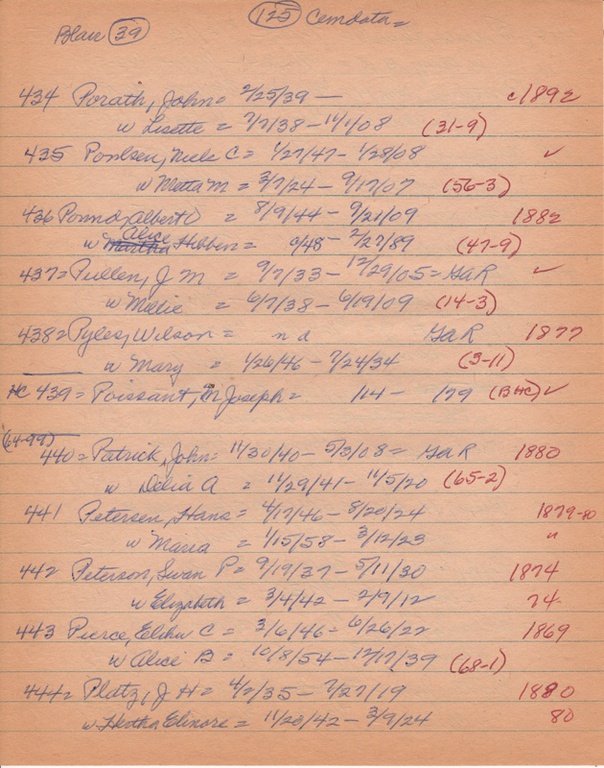 Blair (39) (125) Cemdata=
434 Porath, John = 2/25/39 — c1892
w Lisette = 7/7/38 - 11/1/08 (31-9)
435 Poulsen, Niels C = 1/27/47 - 1/28/08 ✓
w Metta M = 3/7/24 - 9/17/07 (56-3)
436 Pound, Albert = 8/9/44 - 9/21/09 1882
w Martha Alice Hibben = c/48 - 2/27/89 (47-9)
437 = Pullen, J M = 9/7/33 - 12/29/05 = GaR ✓
w Millie = 6/7/38 - 6/19/09 (14-3)
438 = Pyles, Wilson = nd GaR 1877
w Mary = 1/26/46 - 7/24/34 (3-11)
HC 439 = Poissant, M Joseph = /14 - /79 (BHC) ✓
(64-99)
440 = Patrick, John = 11/30/40 - 5/3/08 = GaR 1880
w Delia A = 11/29/41 - 11/5/20 (65-2)
441 Petersen, Hans = 4/17/46 - 8/20/24 1879-80
w Maria = 1/15/58 - 3/12/23 "
442 Peterson, Swan P = 9/19/37 - 5/11/30 1874
w Elizabeth = 3/4/42 - 2/9/12 74
443 Pierce, Elihu C = 3/6/46 = 6/26/22 1869
w Alice B = 10/8/54 - 12/17/39 (68-1)
444 = Platz, J H = 4/2/35 - 7/27/19 1880
w Elinore = 11/20/42 - 3/9/24 80